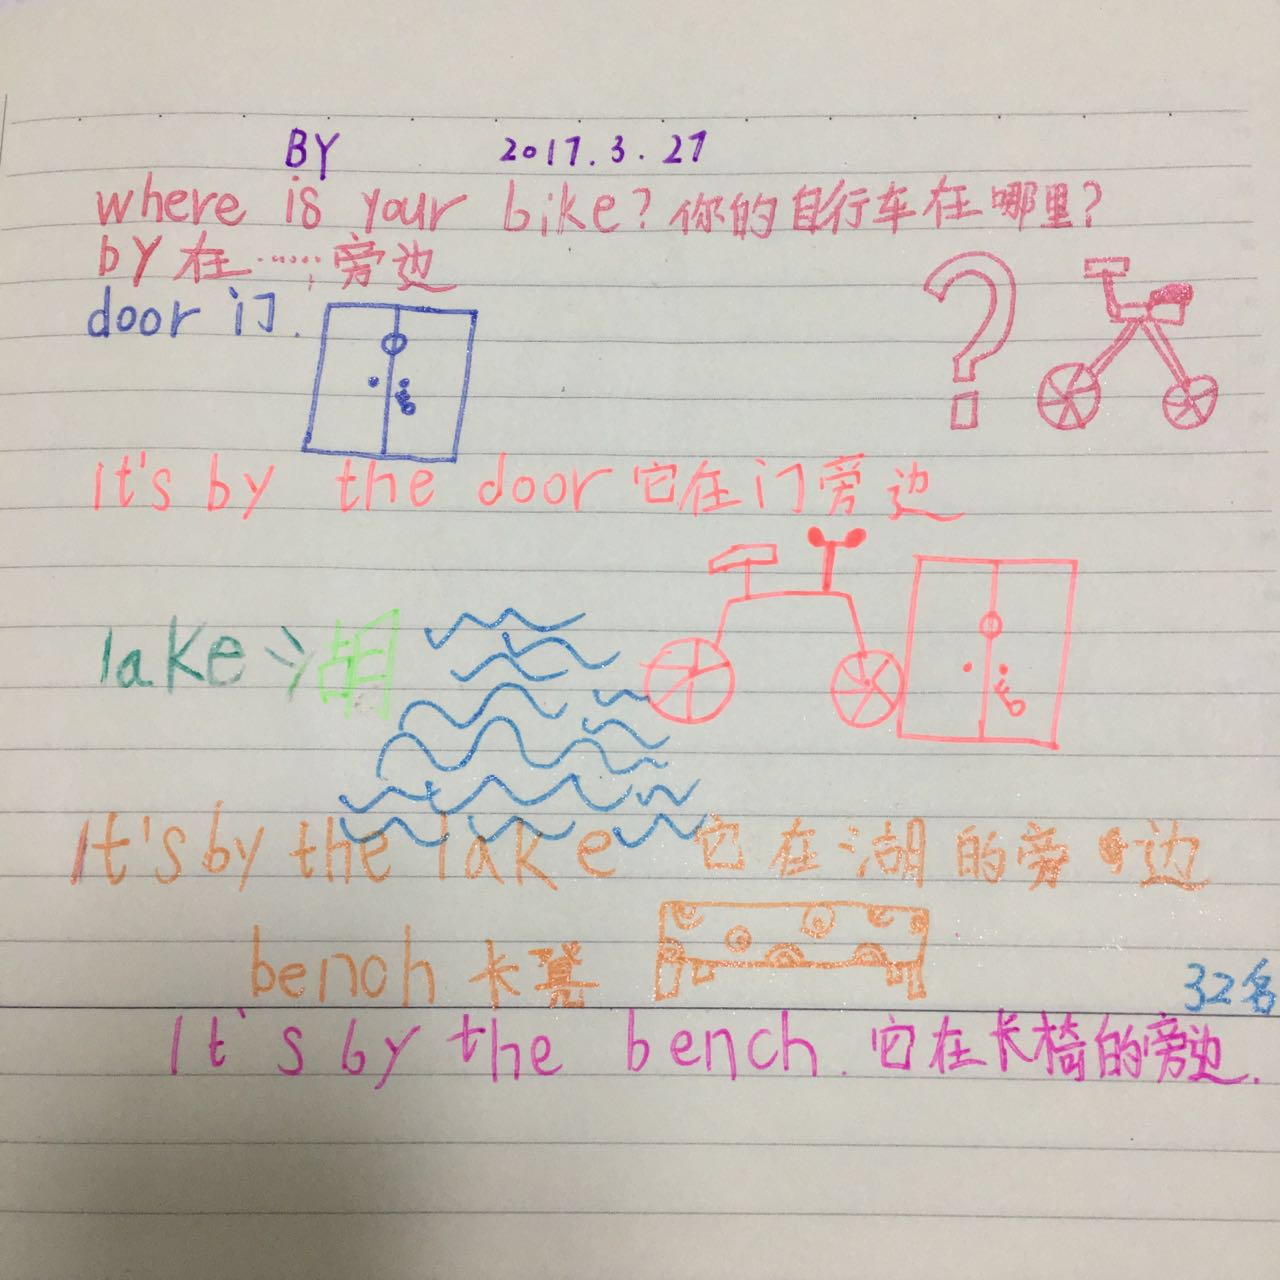 BY 2017.3.27
where is your bike? 你的自行车在哪里?
by 在……旁边
door 门.
It's by the door 它在门旁边
lake 湖
It's by the lake 它在湖的旁边
bench 长凳
32名
It's by the bench. 它在长椅的旁边.